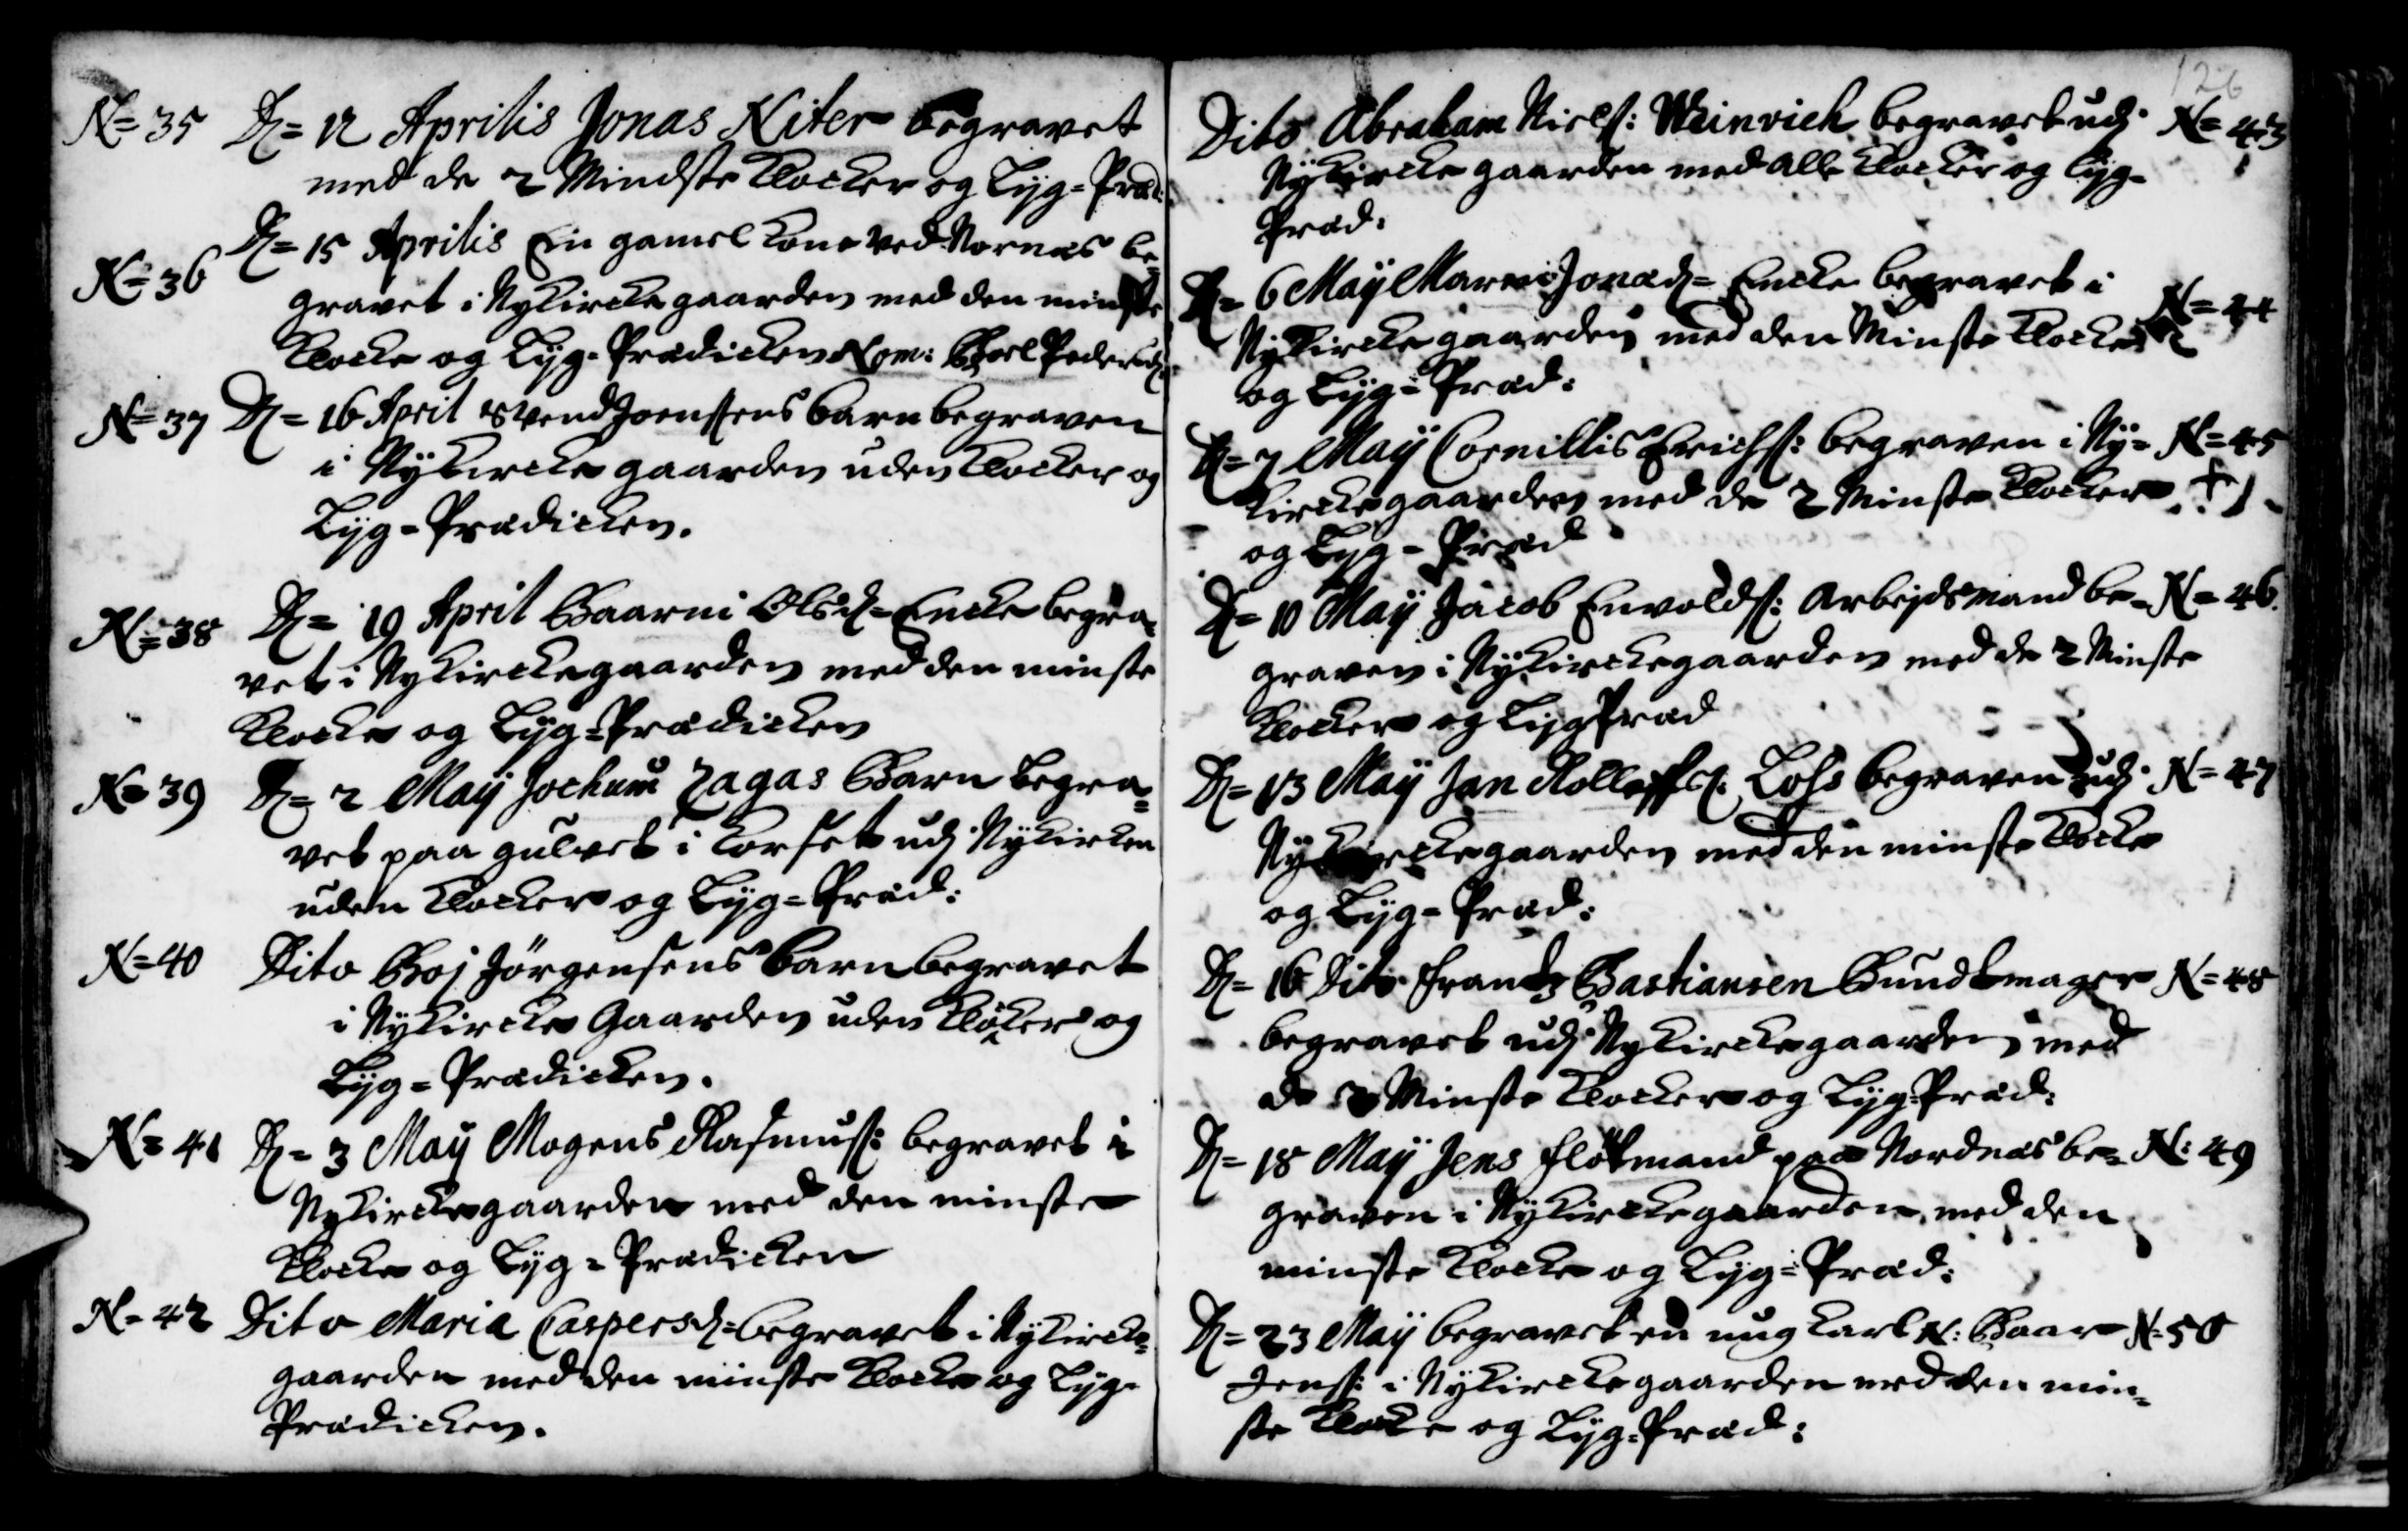 N= 35 D= 12 Aprilis Jonas Kiter begravet
med de 2 Mindste Klocker og Lyg=Præd:
N= 36 D= 15 Aprilis Ein gamel Kone ved Nornæs be=
gravet i Nykircke gaarden med den minste
Klocke og Lyg=Prædicken Nom: Boel Pedersd:
N= 37 D= 16 April Svend Joenssens barn begraven
i Nykircke gaarden uden Klocker og
Lyg=Prædicken.
N= 38 D= 19 April Baarni Olsd= Encke begra=
vet i Nykirckegaarden med den minste
Klocke og Lyg=Prædicken
N= 39 D= 2 Maÿ Jochum Zagas Barn begra=
vet paa gulvet i Korset udj Nykircken
uden Klocker og Lyg=Præd:
N= 40 Dito Boj Jørgensens barn begravet
i Nykircke Gaarden uden Klocker og
Lyg=Prædicken.
N= 41 D= 3 Maÿ Mogens Rasmuss: begravet i
Nykirckegaarden med den minste
Klocke og Lyg=Prædicken
N= 42 Dito Maria Caspersd= begravet i Nykircke=
gaarden med den minste Klocke og Lyg=
Prædicken.
126
Dito Abraham Niels: Weinrich begravet udj N= 43
Nykircke gaarden med alle Klocker og Lyg=
Præd:
D= 6 Maÿ Maren Jonæd= Encke begravet i N= 44
Nykirckegaarden med den Minste Klocke
og Lyg=Præd:
D= 7 Maÿ Cornillis Erichs: begraven i Ny= N= 45
kirckegaarden med de 2 Minste Klocker
og Lyg=Præd
D= 10 Maÿ Jacob Envolds: Arbejdsmand be= N= 46.
graven i Nykirckegaarden med de 2 Minste
Klocker og Lyg Præd
D= 13 Maÿ Jan Rolleffs: Lohs begraven udj N= 47
Nykirckegaarden med den minste Klocke
og Lyg=Præd:
D= 16 Dito Frantz Bastiansen Bundtmager N= 48
begravet udj Nykirckegaarden med
de 2 Minste Klocker og Lyg Præd:
D= 18 Maÿ Jens Fløtmand paa Nordnæs be= N: 49
graven i Nykirckegaarden med den
minste Klocke og Lyg=Præd:
D= 23 Maÿ begravet en ung Karl N: Baar N= 50
Jens: i Nykirckegaarden med den min=
ste Klocke og Lyg=Præd: